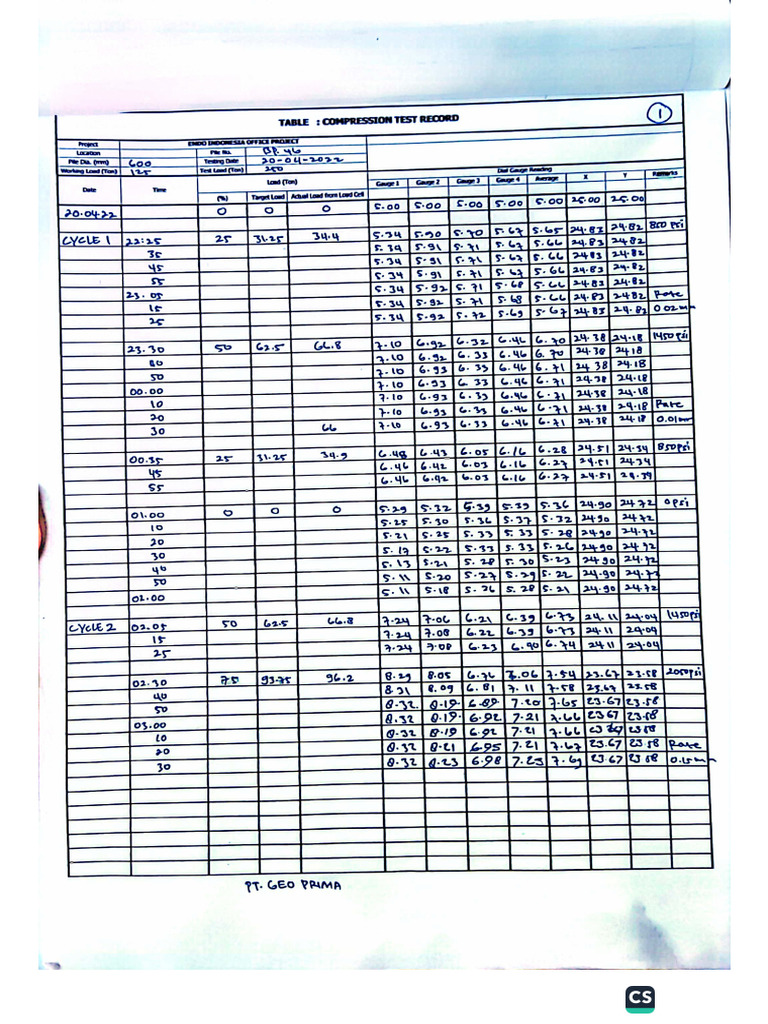 1
TABLE : COMPRESSION TEST RECORD
Project ENDO INDONESIA OFFICE PROJECT
Location Pile No. BP. 46
Pile Dia. (mm) 600 Testing Date 20-04-2022
Working Load (Ton) 125 Test Load (Ton) 250 Dial Gauge Reading
Date Time Load (Ton) Gauge 1 Gauge 2 Gauge 3 Gauge 4 Average X Y Remarks
(%) Target Load Actual Load from Load Cell
20.04.22 0 0 0 5.00 5.00 5.00 5.00 5.00 25.00 25.00
CYCLE 1 22:25 25 31.25 34.4 5.34 5.90 5.70 5.67 5.65 24.83 24.82 850 psi
35 5.34 5.91 5.71 5.67 5.66 24.83 24.82
45 5.34 5.91 5.71 5.67 5.66 24.83 24.82
55 5.34 5.91 5.71 5.67 5.66 24.83 24.82
23.05 5.34 5.92 5.71 5.68 5.66 24.83 24.82
15 5.34 5.92 5.71 5.68 5.66 24.83 24.82 Rate
25 5.34 5.92 5.72 5.69 5.67 24.83 24.82 0.02mm
23.30 50 62.5 66.8 7.10 6.92 6.32 6.46 6.70 24.38 24.18 1450 psi
7.10 6.92 6.33 6.46 6.70 24.38 24.18
50 7.10 6.93 6.33 6.46 6.71 24.38 24.18
00.00 7.10 6.93 6.33 6.46 6.71 24.38 24.18
10 7.10 6.93 6.33 6.46 6.71 24.38 24.18
20 7.10 6.93 6.33 6.46 6.71 24.38 24.18 Rate
30 66 7.10 6.93 6.33 6.46 6.71 24.38 24.18 0.01mm
00.35 25 31.25 34.9 6.48 6.43 6.05 6.16 6.28 24.51 24.34 850psi
45 6.46 6.42 6.03 6.16 6.27 24.51 24.34
55 6.46 6.42 6.03 6.16 6.27 24.51 24.34
01.00 0 0 0 5.29 5.32 5.39 5.39 5.36 24.90 24.72 0 psi
10 5.25 5.30 5.36 5.37 5.32 24.90 24.72
20 5.21 5.25 5.33 5.33 5.28 24.90 24.72
30 5.17 5.22 5.33 5.33 5.26 24.90 24.72
40 5.13 5.21 5.28 5.30 5.23 24.90 24.72
50 5.11 5.20 5.27 5.29 5.22 24.90 24.72
02.00 5.11 5.18 5.26 5.28 5.21 24.90 24.72
CYCLE 2 02.05 50 62.5 66.8 7.24 7.06 6.21 6.39 6.73 24.11 24.04 1450psi
15 7.24 7.08 6.22 6.39 6.73 24.11 24.04
25 7.24 7.08 6.23 6.40 6.74 24.11 24.04
02.30 75 93.75 96.2 8.29 8.05 6.76 7.06 7.54 23.67 23.58 2050 psi
40 8.31 8.09 6.81 7.11 7.58 23.67 23.58
50 8.32 8.19 6.89 7.20 7.65 23.67 23.58
03.00 8.32 8.19 6.92 7.21 7.66 23.67 23.58
10 8.32 8.19 6.92 7.21 7.66 23.67 23.58
20 8.32 8.21 6.95 7.21 7.67 23.67 23.58 Rate
30 8.32 8.23 6.98 7.23 7.69 23.67 23.58 0.15mm
PT. GEO PRIMA
CS